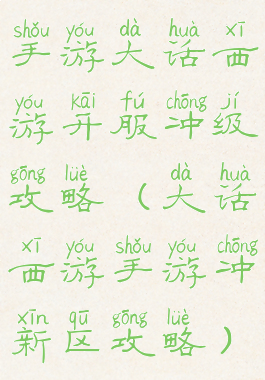 shǒu yóu dà huà xī
手游大话西
yóu kāi fú chōng jí
游开服冲级
gōng lüè dà huà
攻略（大话
xī yóu shǒu yóu chōng
西游手游冲
xīn qū gōng lüè
新区攻略）